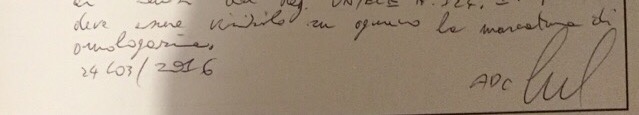 Reg. UN/ECE N. 324.
deve essere visibile su ognuno la marcatura di
omologazione.
24/03/2016
ADC